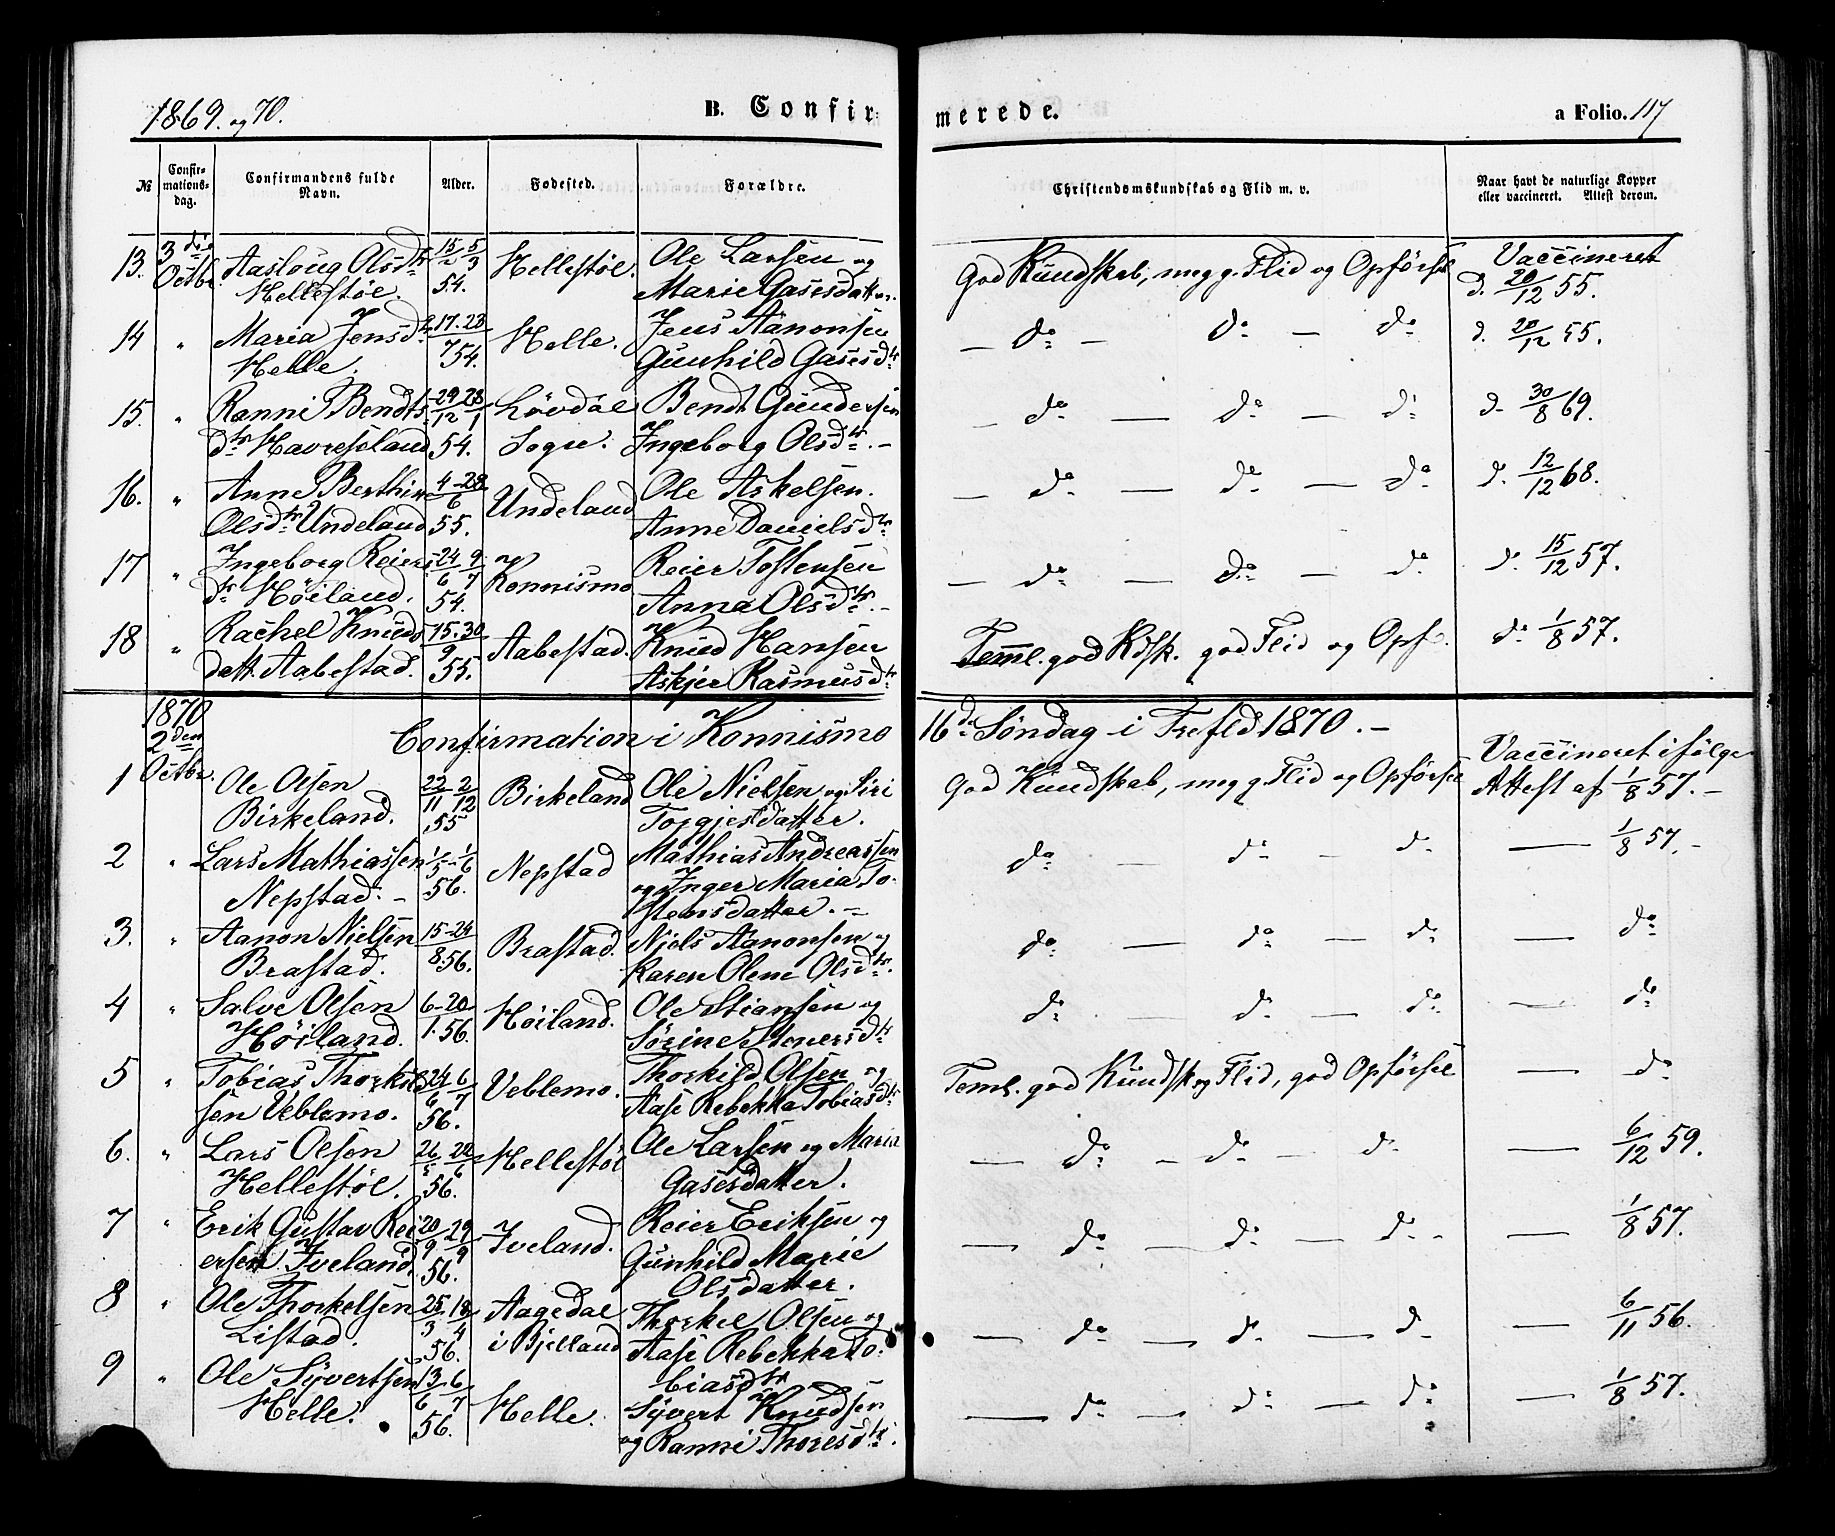 1869. og 70.
B. Confirmerede.
a Folio. 117
№
Confirmations-dag.
Confirmandens fulde Navn.
Alder.
Fødested.
Forældre.
Christendomskundskab og Flid m. v.
Naar havt de naturlige Kopper eller vaccineret. Attest derom.
13. 3die Octbr. Aasloug Olsdtr Hellestøl. 15/2 5/3 54. Hellestøl. Ole Larsen og Marie Gasesdatter. God Kundskab, meg g. Flid og Opførsel Vaccineret d. 20/12 55.
14 " Maria Jensdtr Helle. 17-23/7 54. Helle. Jens Aanonsen Gunhild Gasesdtr — do — do — do d. 20/12 55.
15. " Ranni Bendts dtr Havresland 29/12 28/1 54. Løvdal Sogn. Bendt Gundersen Ingeborg Olsdtr. — do — do — do d. 30/8 69.
16. " Anne Berthine Olsdtr Undeland 4-28/6 55. Undeland Ole Askelsen. Anne Danielsdtr — do — do — do d. 12/12 68.
17 " Ingeborg Reiers dtr Høiland. 24/6 9/7 54. Konnismo Reier Tostensen Anna Olsdtr. — do — do — do do 15/12 57.
18 " Rachel Knuds datt. Aabestad. 15-30/9 55. Aabestad. Knud Hansen Askjer Rasmusdtr Teml. god Kdsk. god Flid og Opf. do 1/8 57.
1870 2den Octbr.
Confirmation i Konnismo 16de Søndag i Trefld 1870. —
1 Ole Olsen Birkeland. 22/11 - 2/12 55 Birkeland Ole Nielsen og Siri Torgjesdatter. God Kundskab, meg g. Flid og Opførsel Vaccineret ifølge Attest af 1/8 57. —
2 " Lars Mathiassen Nepstad. — 1/5 - 1/6 56. Nepstad Mathias Andreassen og Inger Maria Tostensdatter. — do — do — do — 1/8 57. —
3. " Aanon Nielsen Brastad. 15-24/8 56. Brastad. Niels Aanonsen og Karen Olene Olsdtr. do — do — do — do
4 " Salve Olsen Høiland. 6-20/1 56. Høiland. Ole Stiansen og Sørine dtr do — do — do — do
5 " Tobias Thorkildsen Veblemo. 24/6 6/7 56. Veblemo. Thorkild Olsen og Aase Rebekka Tobiasdtr Teml. god Kundsk og Flid, god Opførsel — do
6. " Lars Olsen Hellestøl. 26/5 22/6 56. Hellestøl Ole Larsen og Maria Gasesdatter. — do — do — do — 6/12 59.
7 " Erik Gustav Reiersen Iveland. 20/9 29/9 56. Iveland. Reier Eriksen og Gunhild Marie Olsdatter. — do — do — do — 1/8 57.
8 " Ole Thorkelsen Listad. 25/3 18/4 56. Aagedal i Bjelland Thorkel Olsen og Aase Rebekka Tobiasdtr — do — do — do — 6/11 56.
9 " Ole Syvertsen Helle. 13/6 6/7 56. Helle. Syvert Knudsen og Ranni Thoresdtr. — do — do — do — 1/8 57.